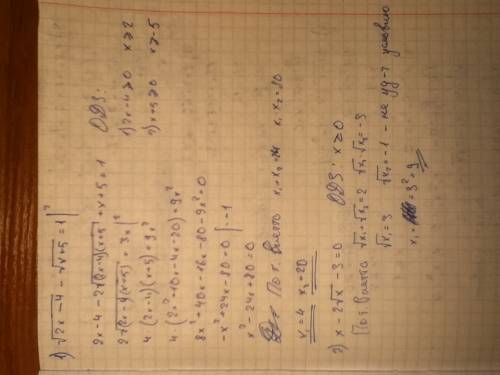 1) √2x-4 - √x+5 = 1 |²
ОДЗ:
2x-4-2√(2x-4)(x+5) + x+5 = 1
1) 2x-4 ⩾ 0 x ⩾ 2
2√(2x-4)(x+5) = 3x |²
2) x+5 ⩾ 0 x ⩾ -5
4 (2x-4)(x+5) = 9x²
4 (2x²+10x-4x-20) = 9x²
8x²+40x-16x-80-9x²=0
-x²+24x-80=0 | -1
x²-24x+80=0
По т. Виета x₁+x₂=24 x₁ x₂=80
x₁=4 x₂=20
2) x-2√x-3=0 ОДЗ: x⩾0
По т Виета √x₁+√x₂=2 √x₁√x₂=-3
√x₁=3 √x₂=-1 - не уд-т условию
x₁= 3²=9